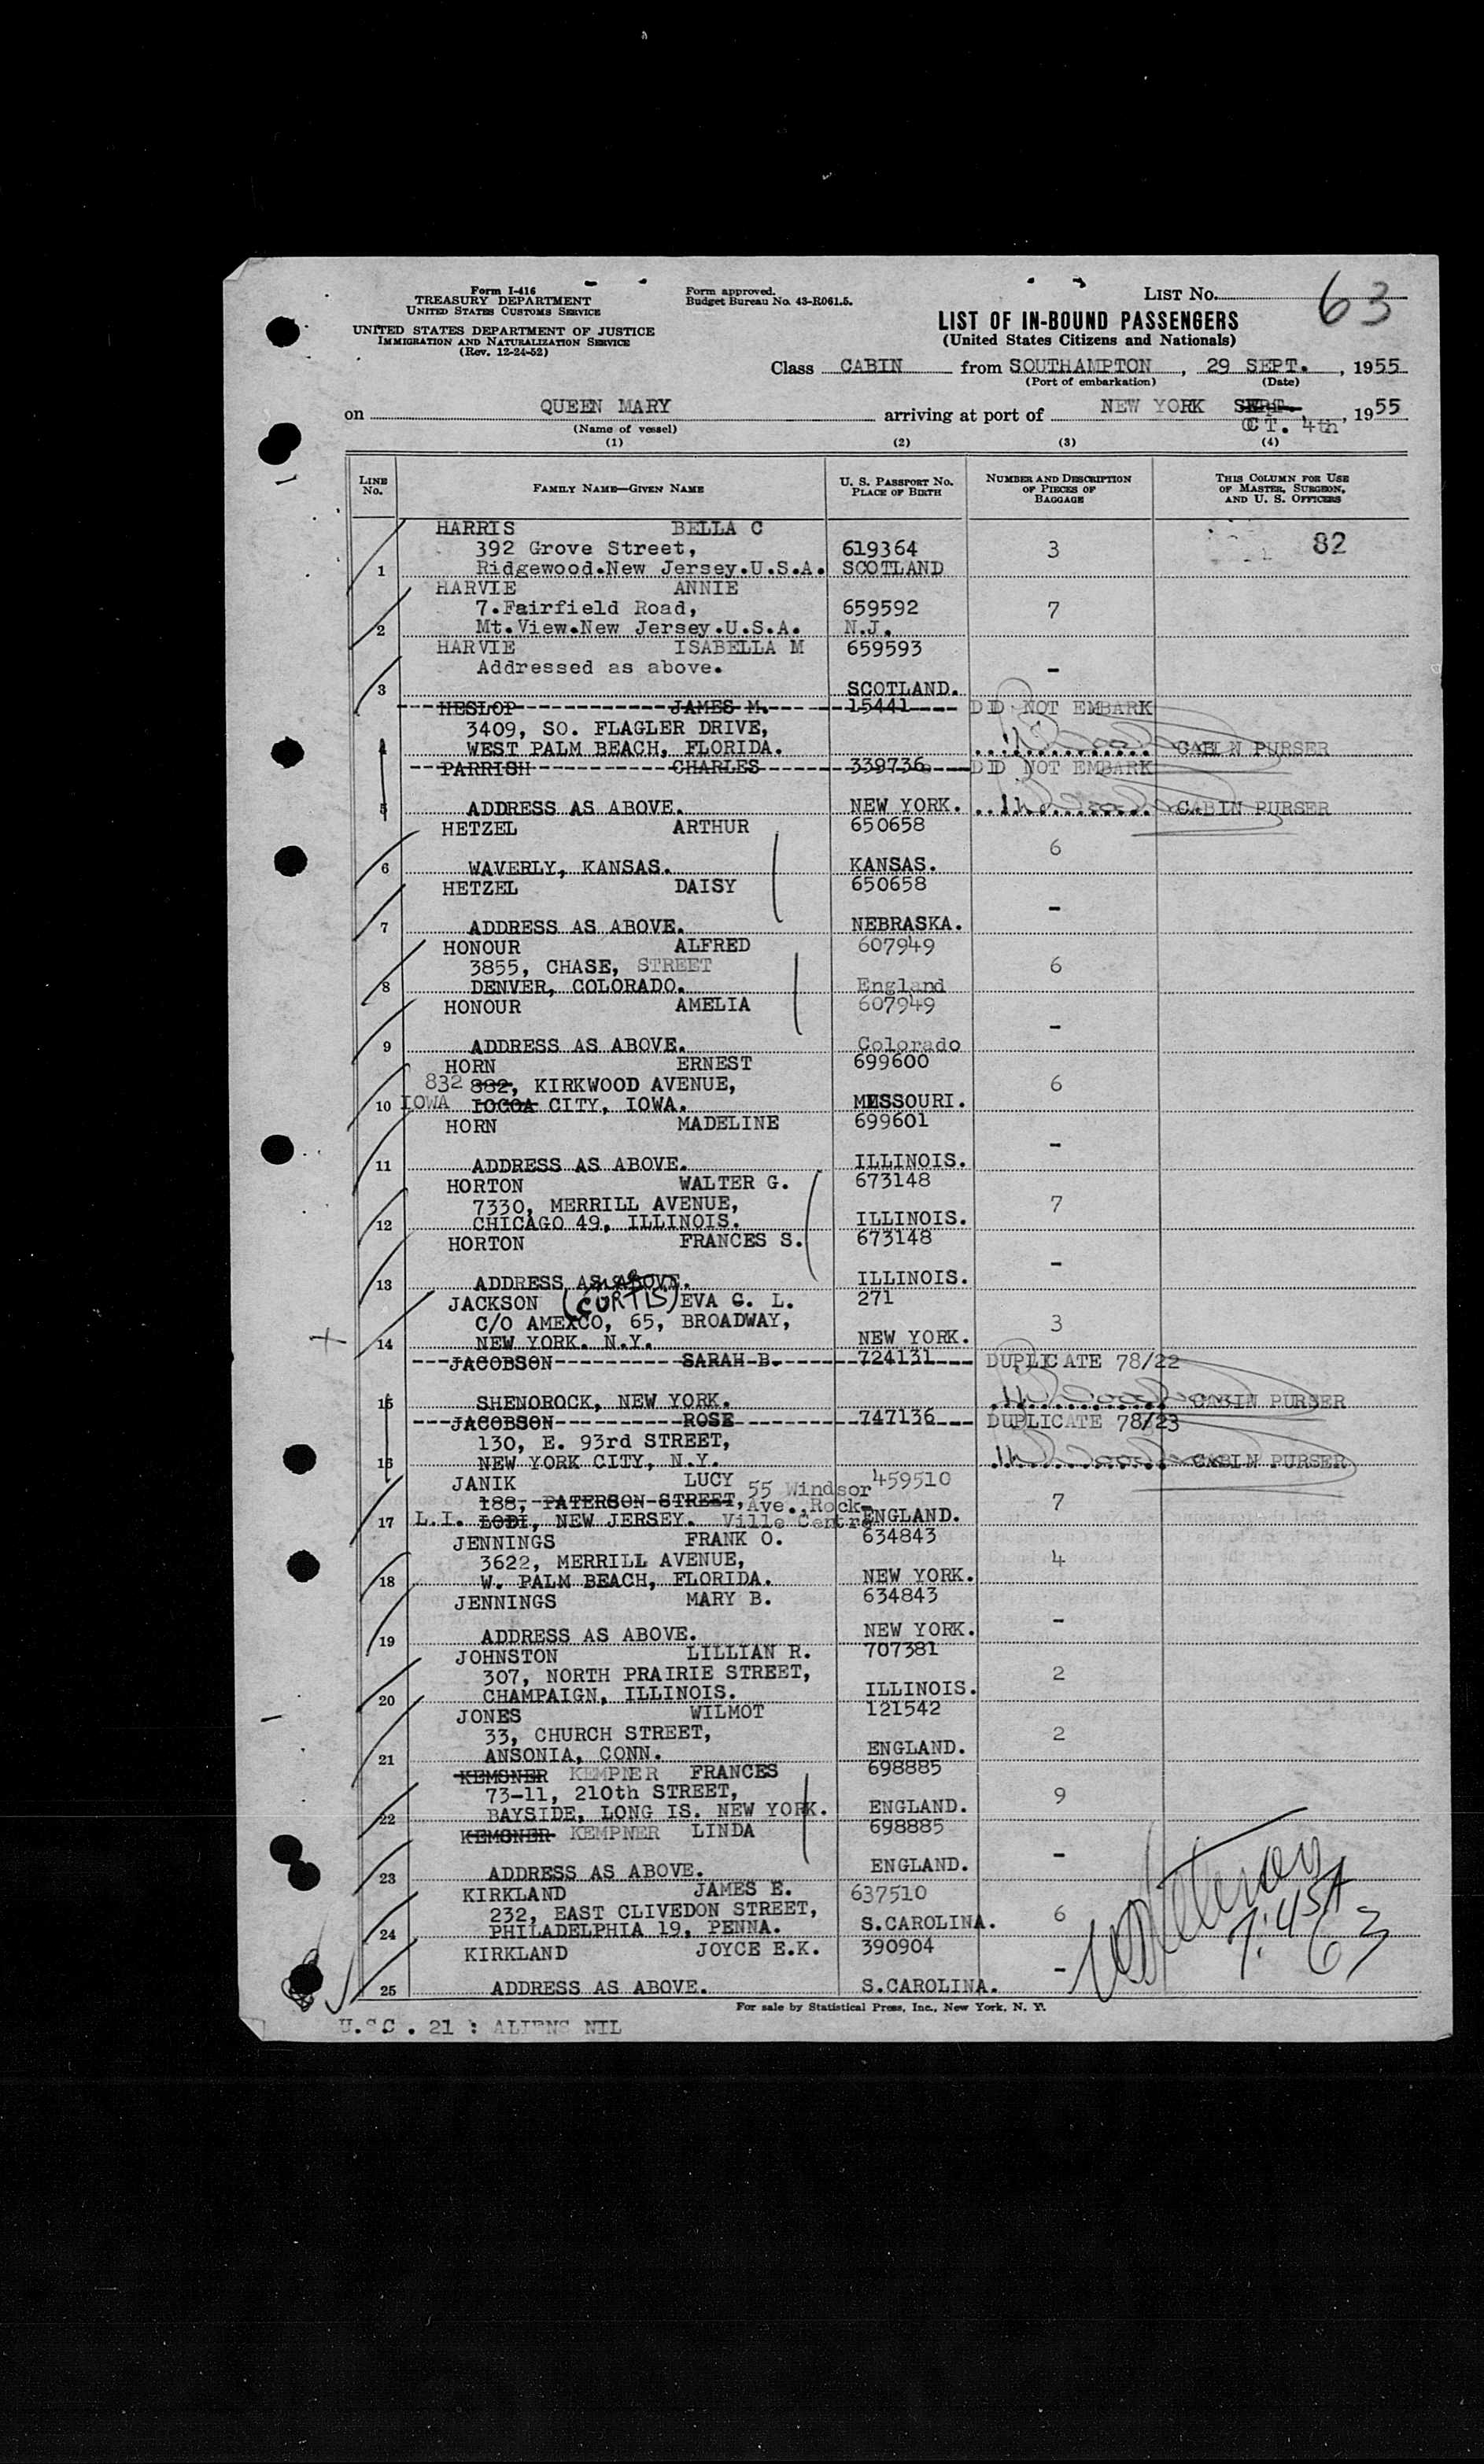 Form I-416
TREASURY DEPARTMENT
UNITED STATES CUSTOMS SERVICE
UNITED STATES DEPARTMENT OF JUSTICE
IMMIGRATION AND NATURALIZATION SERVICE
(Rev. 12-24-52)
Form approved.
Budget Bureau No. 43-R061.5.
LIST No. 63
LIST OF IN-BOUND PASSENGERS
(United States Citizens and Nationals)
Class CABIN from SOUTHAMPTON, 29 SEPT., 1955
(Port of embarkation) (Date)
on QUEEN MARY arriving at port of NEW YORK SEPT. OCT. 4th, 1955
(Name of vessel)
(1) (2) (3) (4)
LINE No. FAMILY NAME—GIVEN NAME U. S. PASSPORT No. PLACE OF BIRTH NUMBER AND DESCRIPTION OF PIECES OF BAGGAGE THIS COLUMN FOR USE OF MASTER, SURGEON, AND U. S. OFFICERS
HARRIS BELLA C
392 Grove Street, 619364 3 82
1 Ridgewood.New Jersey.U.S.A. SCOTLAND
HARVIE ANNIE
7.Fairfield Road, 659592 7
2 Mt.View.New Jersey.U.S.A. N.J.
HARVIE ISABELLA M 659593
Addressed as above. -
3 SCOTLAND.
HESLOP JAMES M. 15441 DID NOT EMBARK
3409, SO. FLAGLER DRIVE,
4 WEST PALM BEACH, FLORIDA. CABIN PURSER
PARRISH CHARLES 339736 DID NOT EMBARK
5 ADDRESS AS ABOVE. NEW YORK. CABIN PURSER
HETZEL ARTHUR 650658
6
6 WAVERLY, KANSAS. KANSAS.
HETZEL DAISY 650658
-
7 ADDRESS AS ABOVE. NEBRASKA.
HONOUR ALFRED 607949
3855, CHASE, STREET 6
8 DENVER, COLORADO. England
HONOUR AMELIA 607949
-
9 ADDRESS AS ABOVE. Colorado
HORN ERNEST 699600
832 882, KIRKWOOD AVENUE, 6
10 IOWA IOCOA CITY, IOWA. MISSOURI.
HORN MADELINE 699601
-
11 ADDRESS AS ABOVE. ILLINOIS.
HORTON WALTER G. 673148
7330, MERRILL AVENUE, 7
12 CHICAGO 49, ILLINOIS. ILLINOIS.
HORTON FRANCES S. 673148
-
13 ADDRESS AS ABOVE. ILLINOIS.
JACKSON (CURTIS) EVA G. L. 271
C/O AMEXCO, 65, BROADWAY, 3
14 NEW YORK. N.Y. NEW YORK.
JACOBSON SARAH B. 724131 DUPLICATE 78/22
15 SHENOROCK, NEW YORK. CABIN PURSER
JACOBSON ROSE 747136 DUPLICATE 78/23
130, E. 93rd STREET,
16 NEW YORK CITY, N.Y. CABIN PURSER
JANIK LUCY 459510
188, PATERSON STREET, 55 Windsor Ave., Rock- 7
17 L.I. LODI, NEW JERSEY. Ville Centre ENGLAND.
JENNINGS FRANK O. 634843
3622, MERRILL AVENUE, 4
18 W. PALM BEACH, FLORIDA. NEW YORK.
JENNINGS MARY B. 634843
-
19 ADDRESS AS ABOVE. NEW YORK.
JOHNSTON LILLIAN R. 707381
307, NORTH PRAIRIE STREET, 2
20 CHAMPAIGN, ILLINOIS. ILLINOIS.
JONES WILMOT 121542
33, CHURCH STREET, 2
21 ANSONIA, CONN. ENGLAND.
KEMSNER KEMPNER FRANCES 698885
73-11, 210th STREET, 9
22 BAYSIDE, LONG IS. NEW YORK. ENGLAND.
KEMSNER KEMPNER LINDA 698885
-
23 ADDRESS AS ABOVE. ENGLAND.
KIRKLAND JAMES E. 637510
232, EAST CLIVEDON STREET, 6
24 PHILADELPHIA 19, PENNA. S.CAROLINA.
KIRKLAND JOYCE E.K. 390904
- 7:45A 63
25 ADDRESS AS ABOVE. S.CAROLINA.
For sale by Statistical Press, Inc., New York, N. Y.
U.SC. 21 : ALIENS NIL